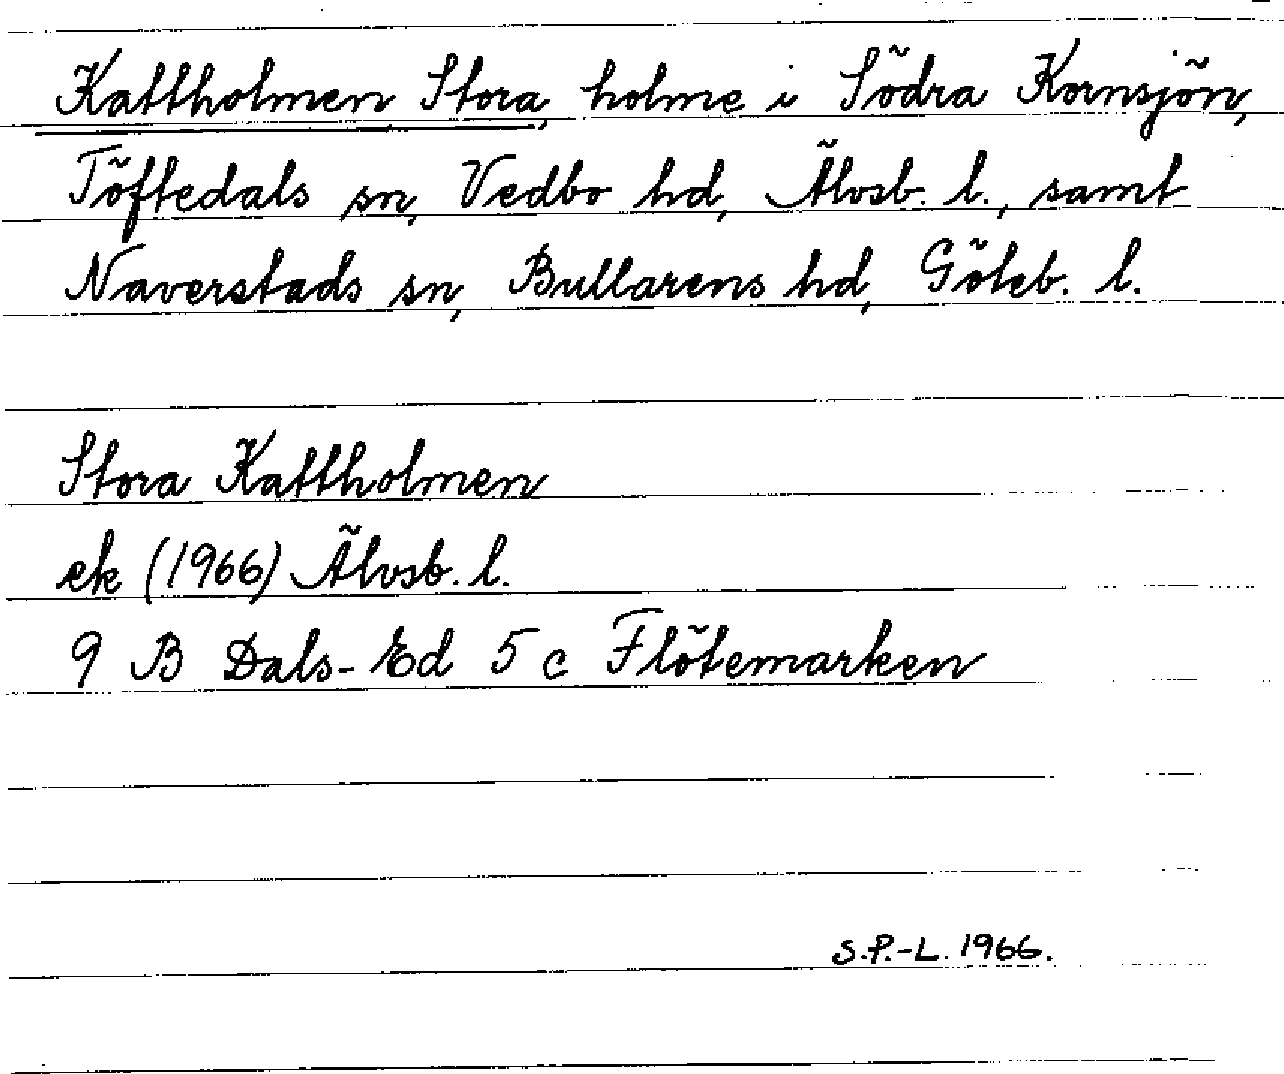 Kattholmen, Stora, holme i Södra Kornsjön,
Töftedals sn, Vedbo hd, Älvsb. l., samt
Naverstads sn, Bullarens hd, Göteb. l.
Stora Kattholmen
ek (1966) Älvsb. l.
9 B Dals-Ed 5 c Flötemarken
S.P.-L. 1966.